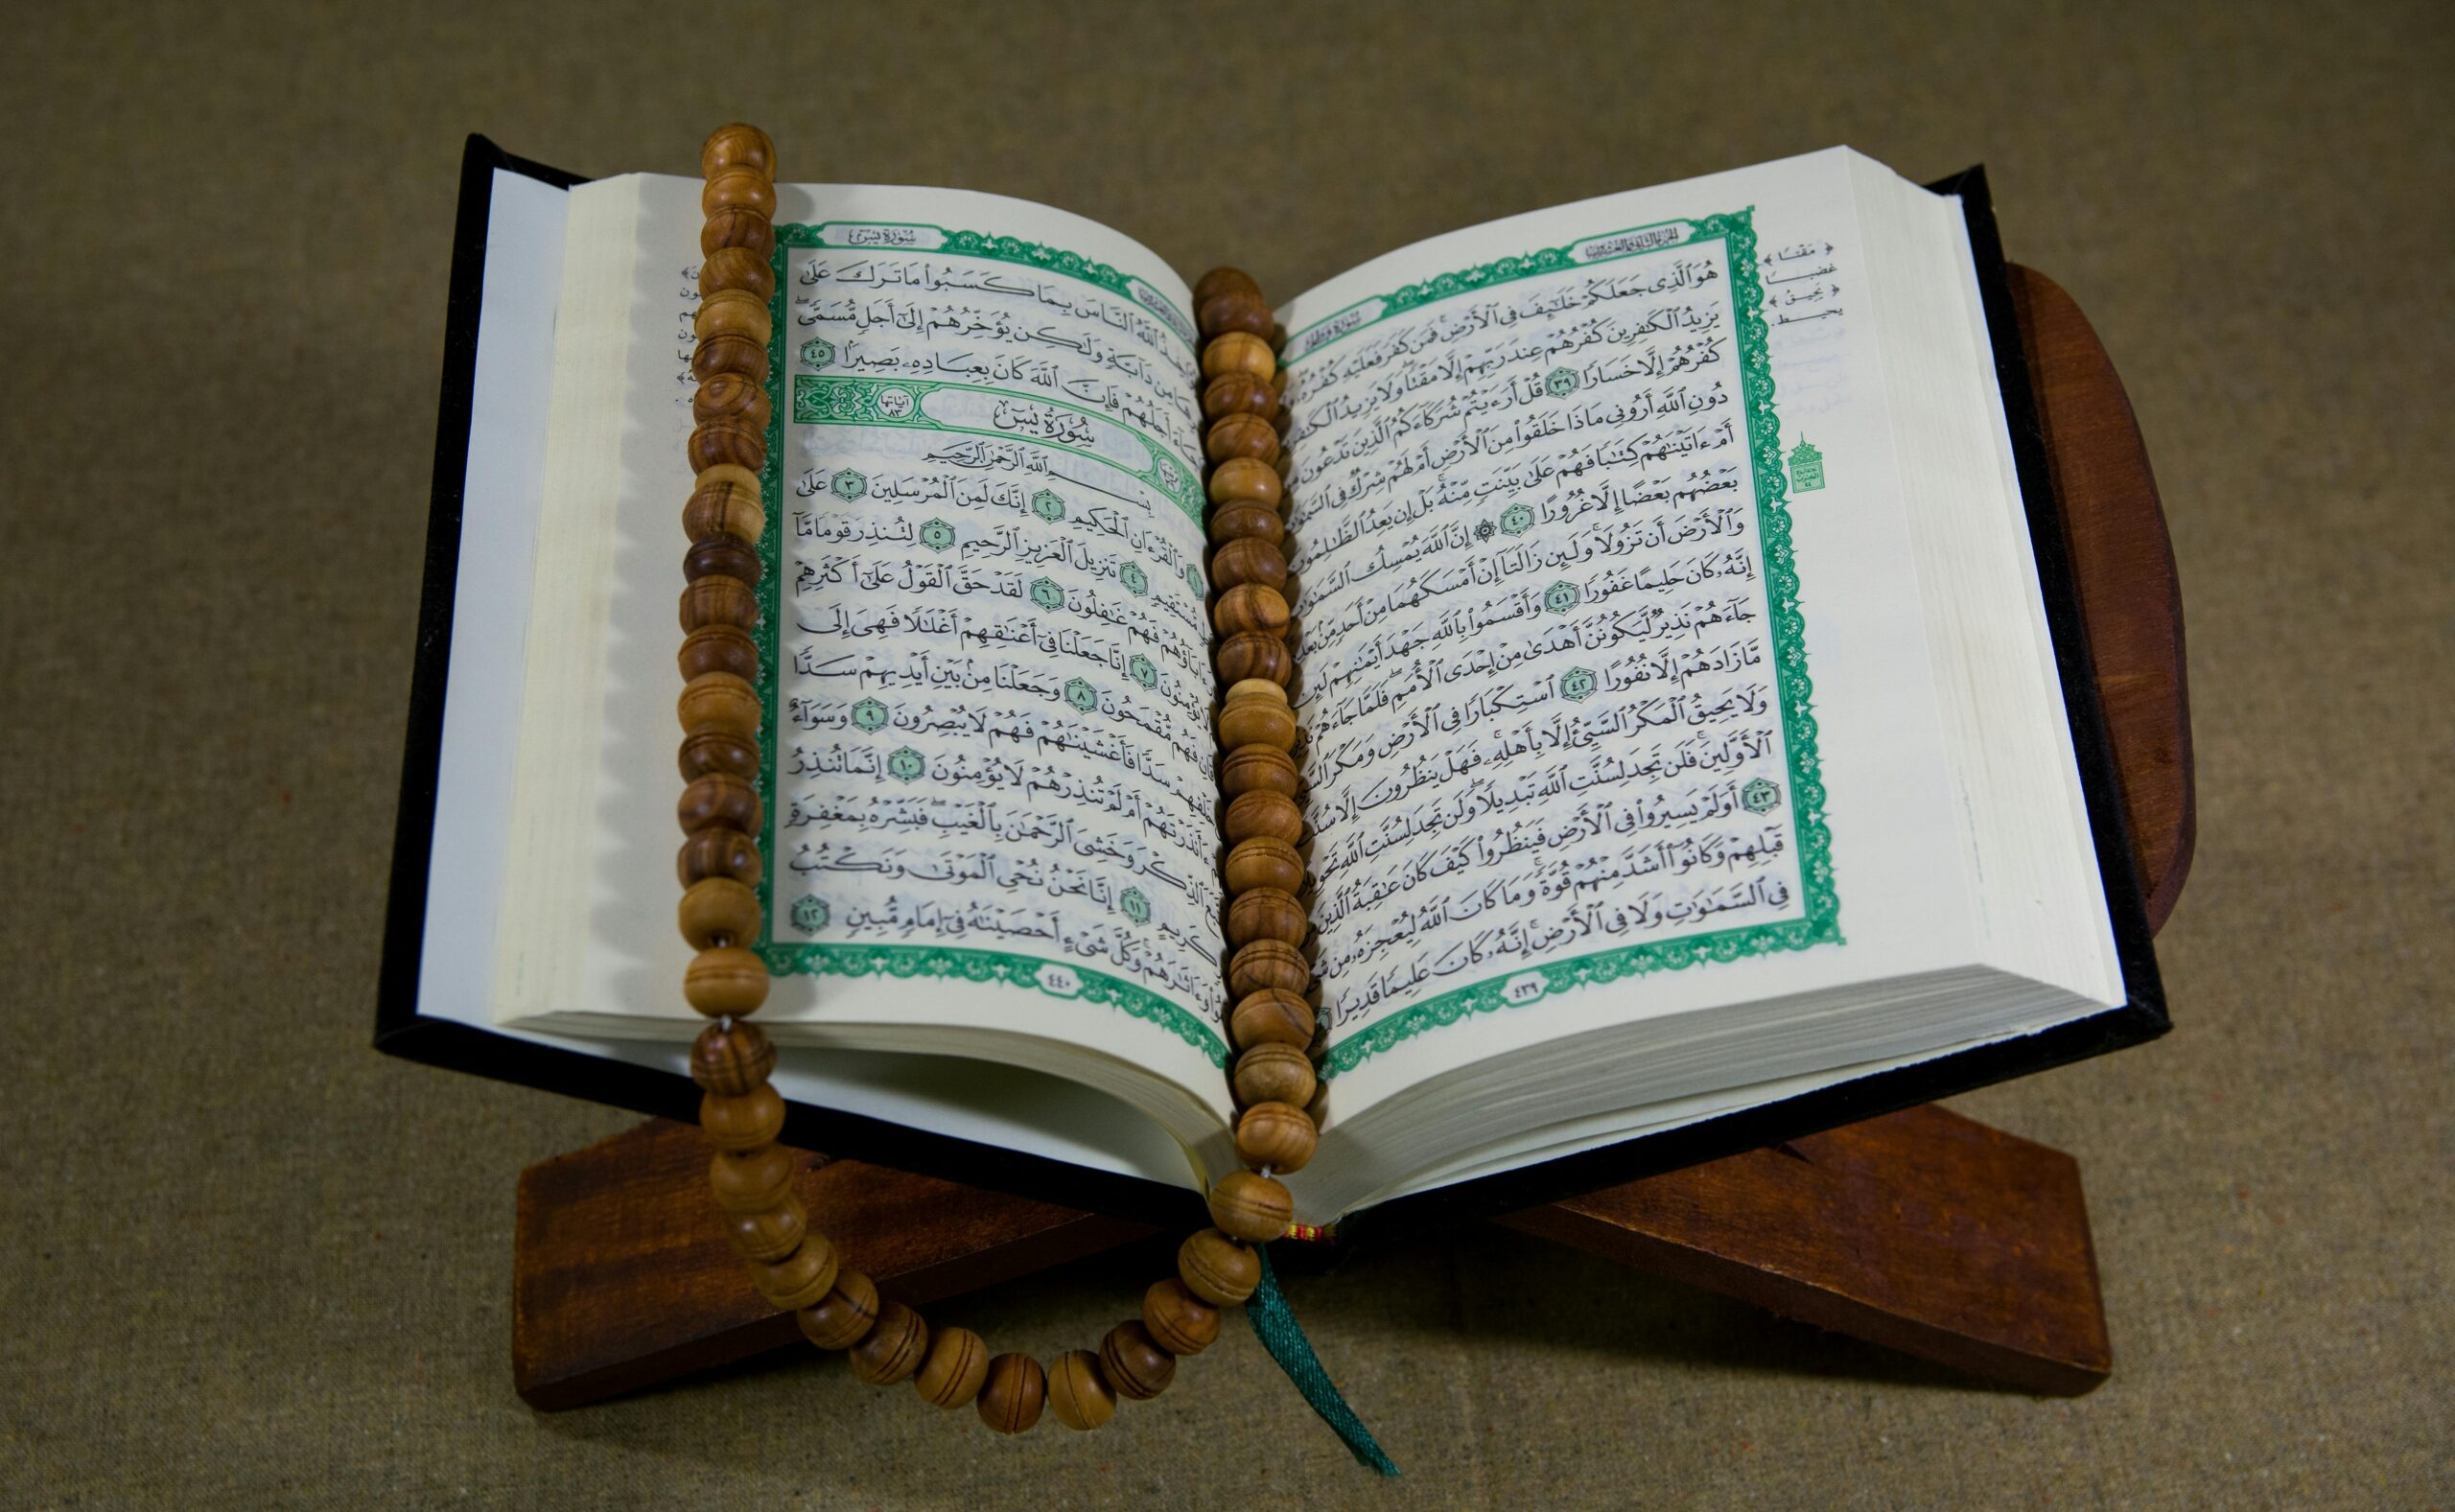 الجزء الثاني والعشرون
سورة فاطر
هُوَ ٱلَّذِى جَعَلَكُمْ خَلَٰٓئِفَ فِى ٱلْأَرْضِ ۚ فَمَن كَفَرَ فَعَلَيْهِ كُفْرُهُۥ
يَزِيدُ ٱلْكَٰفِرِينَ كُفْرُهُمْ عِندَ رَبِّهِمْ إِلَّا مَقْتًا ۖ وَلَا يَزِيدُ ٱلْكَٰفِرِينَ
كُفْرُهُمْ إِلَّا خَسَارًا ٣٩ قُلْ أَرَءَيْتُمْ شُرَكَآءَكُمُ ٱلَّذِينَ تَدْعُونَ
دُونِ ٱللَّهِ أَرُونِى مَاذَا خَلَقُوا۟ مِنَ ٱلْأَرْضِ أَمْ لَهُمْ شِرْكٌ فِى ٱلسَّمَٰوَٰتِ
أَمْ ءَاتَيْنَٰهُمْ كِتَٰبًا فَهُمْ عَلَىٰ بَيِّنَتٍ مِّنْهُ ۚ بَلْ إِن يَعِدُ ٱلظَّٰلِمُونَ
بَعْضُهُم بَعْضًا إِلَّا غُرُورًا ٤٠ ۞ إِنَّ ٱللَّهَ يُمْسِكُ ٱلسَّمَٰوَٰتِ
وَٱلْأَرْضَ أَن تَزُولَا ۚ وَلَئِن زَالَتَآ إِنْ أَمْسَكَهُمَا مِنْ أَحَدٍ مِّنۢ بَعْدِهِۦٓ
إِنَّهُۥ كَانَ حَلِيمًا غَفُورًا ٤١ وَأَقْسَمُوا۟ بِٱللَّهِ جَهْدَ أَيْمَٰنِهِمْ لَئِن
جَآءَهُمْ نَذِيرٌ لَّيَكُونُنَّ أَهْدَىٰ مِنْ إِحْدَى ٱلْأُمَمِ ۖ فَلَمَّا جَآءَهُمْ نَذِيرٌ
مَّا زَادَهُمْ إِلَّا نُفُورًا ٤٢ ٱسْتِكْبَارًا فِى ٱلْأَرْضِ وَمَكْرَ ٱلسَّيِّئِ
وَلَا يَحِيقُ ٱلْمَكْرُ ٱلسَّيِّئُ إِلَّا بِأَهْلِهِۦ ۚ فَهَلْ يَنظُرُونَ إِلَّا سُنَّتَ
ٱلْأَوَّلِينَ ۚ فَلَن تَجِدَ لِسُنَّتِ ٱللَّهِ تَبْدِيلًا ۖ وَلَن تَجِدَ لِسُنَّتِ ٱللَّهِ تَحْوِيلًا
٤٣ أَوَلَمْ يَسِيرُوا۟ فِى ٱلْأَرْضِ فَيَنظُرُوا۟ كَيْفَ كَانَ عَٰقِبَةُ ٱلَّذِينَ
قَبْلِهِمْ وَكَانُوٓا۟ أَشَدَّ مِنْهُمْ قُوَّةً ۚ وَمَا كَانَ ٱللَّهُ لِيُعْجِزَهُۥ مِن شَىْءٍ
فِى ٱلسَّمَٰوَٰتِ وَلَا فِى ٱلْأَرْضِ ۚ إِنَّهُۥ كَانَ عَلِيمًا قَدِيرًا
٤٣٩
﴿ مَقْتًا ﴾
غضبا
﴿ يَحِيقُ ﴾
يحيط.
سورة يس
ٱللَّهُ ٱلنَّاسَ بِمَا كَسَبُوا۟ مَا تَرَكَ عَلَىٰ
مِن دَآبَّةٍ وَلَٰكِن يُؤَخِّرُهُمْ إِلَىٰٓ أَجَلٍ مُّسَمًّى ۖ
جَآءَ أَجَلُهُمْ فَإِنَّ ٱللَّهَ كَانَ بِعِبَادِهِۦ بَصِيرًۢا ٤٥
سُورَةُ يسٓ
آياتها ٨٣
بِسْمِ ٱللَّهِ ٱلرَّحْمَٰنِ ٱلرَّحِيمِ
١ وَٱلْقُرْءَانِ ٱلْحَكِيمِ ٢ إِنَّكَ لَمِنَ ٱلْمُرْسَلِينَ ٣ عَلَىٰ
مُّسْتَقِيمٍ ٤ تَنزِيلَ ٱلْعَزِيزِ ٱلرَّحِيمِ ٥ لِتُنذِرَ قَوْمًا مَّآ
ءَابَآؤُهُمْ فَهُمْ غَٰفِلُونَ ٦ لَقَدْ حَقَّ ٱلْقَوْلُ عَلَىٰٓ أَكْثَرِهِمْ
يُؤْمِنُونَ ٧ إِنَّا جَعَلْنَا فِىٓ أَعْنَٰقِهِمْ أَغْلَٰلًا فَهِىَ إِلَى
فَهُم مُّقْمَحُونَ ٨ وَجَعَلْنَا مِنۢ بَيْنِ أَيْدِيهِمْ سَدًّا
خَلْفِهِمْ سَدًّا فَأَغْشَيْنَٰهُمْ فَهُمْ لَا يُبْصِرُونَ ٩ وَسَوَآءٌ
ءَأَنذَرْتَهُمْ أَمْ لَمْ تُنذِرْهُمْ لَا يُؤْمِنُونَ ١٠ إِنَّمَا تُنذِرُ
ٱلذِّكْرَ وَخَشِىَ ٱلرَّحْمَٰنَ بِٱلْغَيْبِ ۖ فَبَشِّرْهُ بِمَغْفِرَةٍ
كَرِيمٍ ١١ إِنَّا نَحْنُ نُحْىِ ٱلْمَوْتَىٰ وَنَكْتُبُ
وَءَاثَٰرَهُمْ ۚ وَكُلَّ شَىْءٍ أَحْصَيْنَٰهُ فِىٓ إِمَامٍ مُّبِينٍ ١٢
٤٤٠